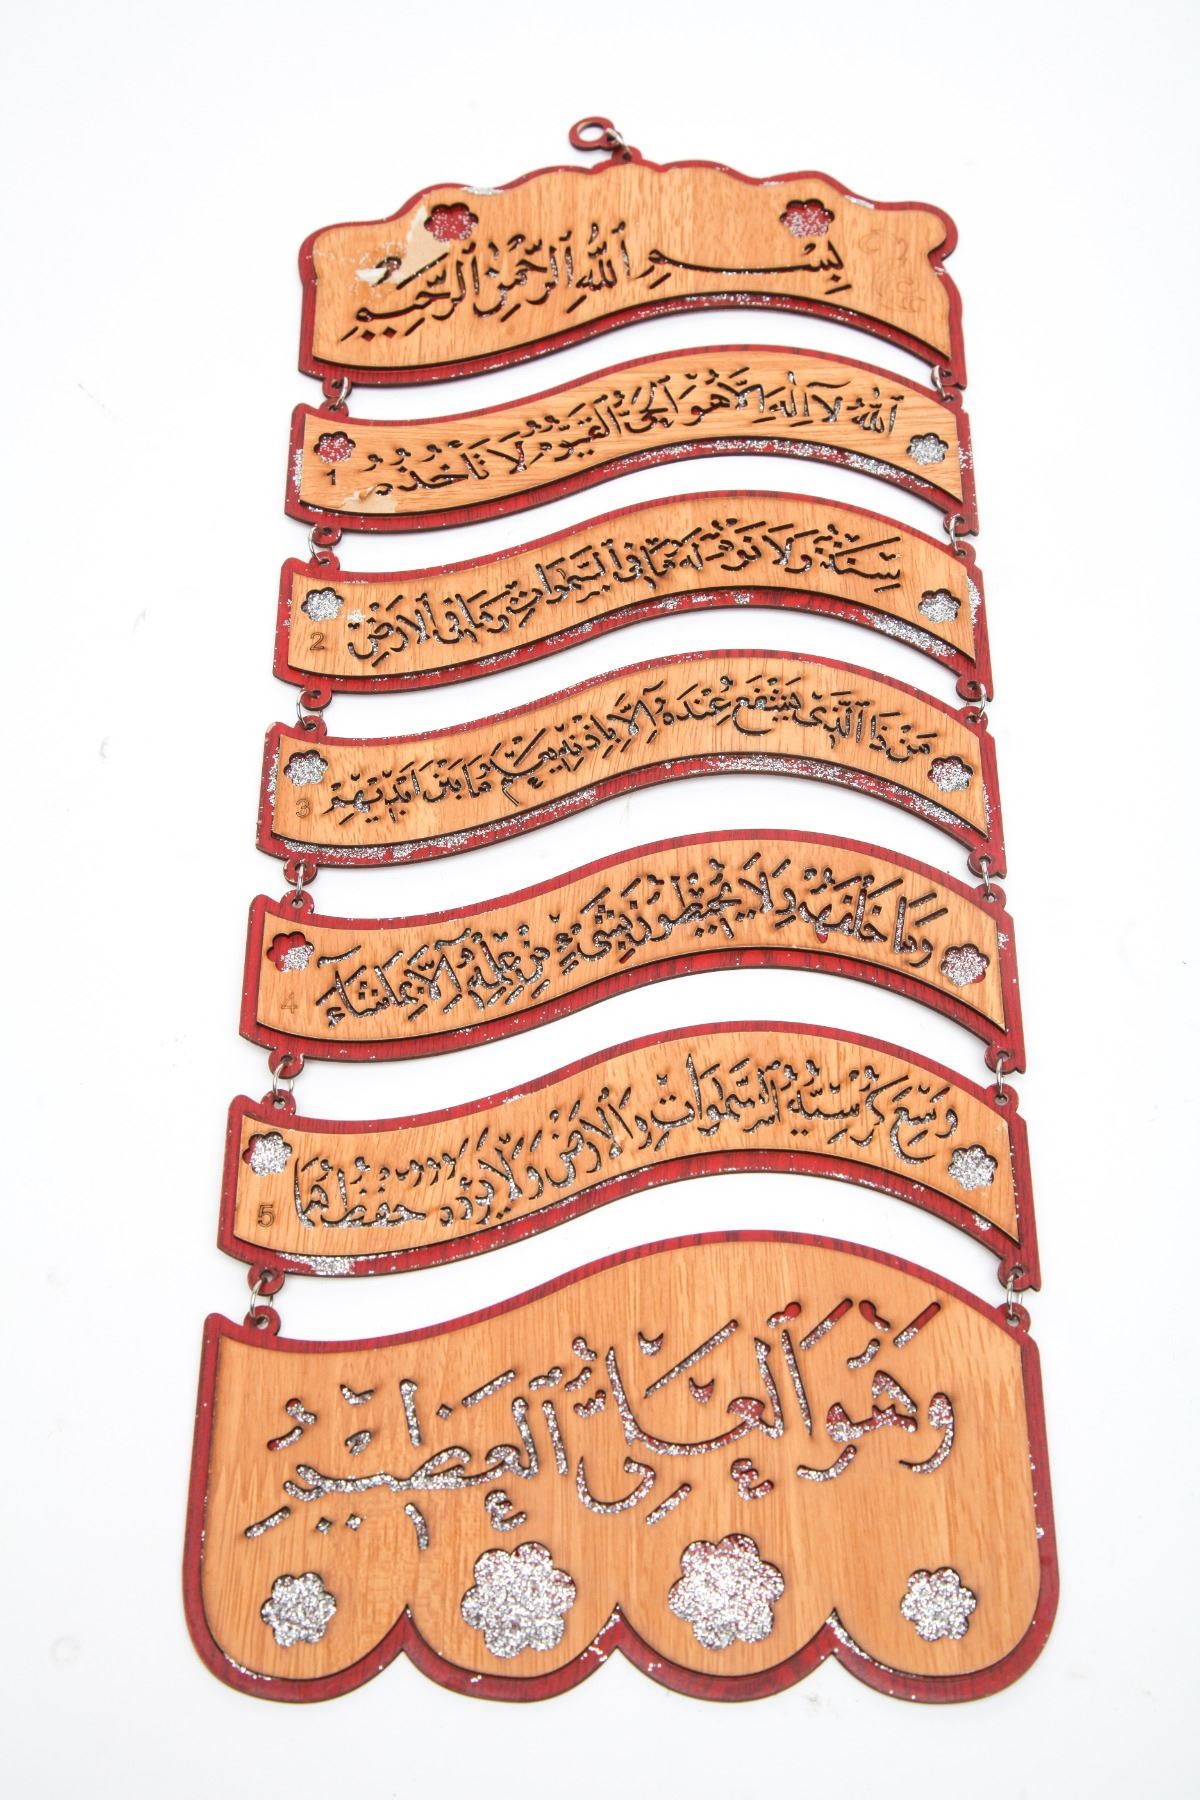 بِسْمِ ٱللّٰهِ ٱلرَّحْمٰنِ ٱلرَّحِيْمِ
اَللّٰهُ لَآ اِلٰهَ اِلَّا هُوَ اَلْحَيُّ الْقَيُّوْمُ لَا تَأْخُذُهُ
1
سِنَةٌ وَلَا نَوْمٌ لَهُ مَا فِي السَّمٰوَاتِ وَمَا فِي الْاَرْضِ
2
مَنْ ذَا الَّذِيْ يَشْفَعُ عِنْدَهُ اِلَّا بِاِذْنِهِ يَعْلَمُ مَا بَيْنَ اَيْدِيْهِمْ
3
وَمَا خَلْفَهُمْ وَلَا يُحِيْطُوْنَ بِشَيْءٍ مِنْ عِلْمِهِ اِلَّا بِمَا شَآءَ
4
وَسِعَ كُرْسِيُّهُ السَّمٰوَاتِ وَالْاَرْضَ وَلَا يَؤُدُهُ حِفْظُهُمَا
5
وَهُوَ ٱلْعَلِيُّ ٱلْعَظِيْمُ